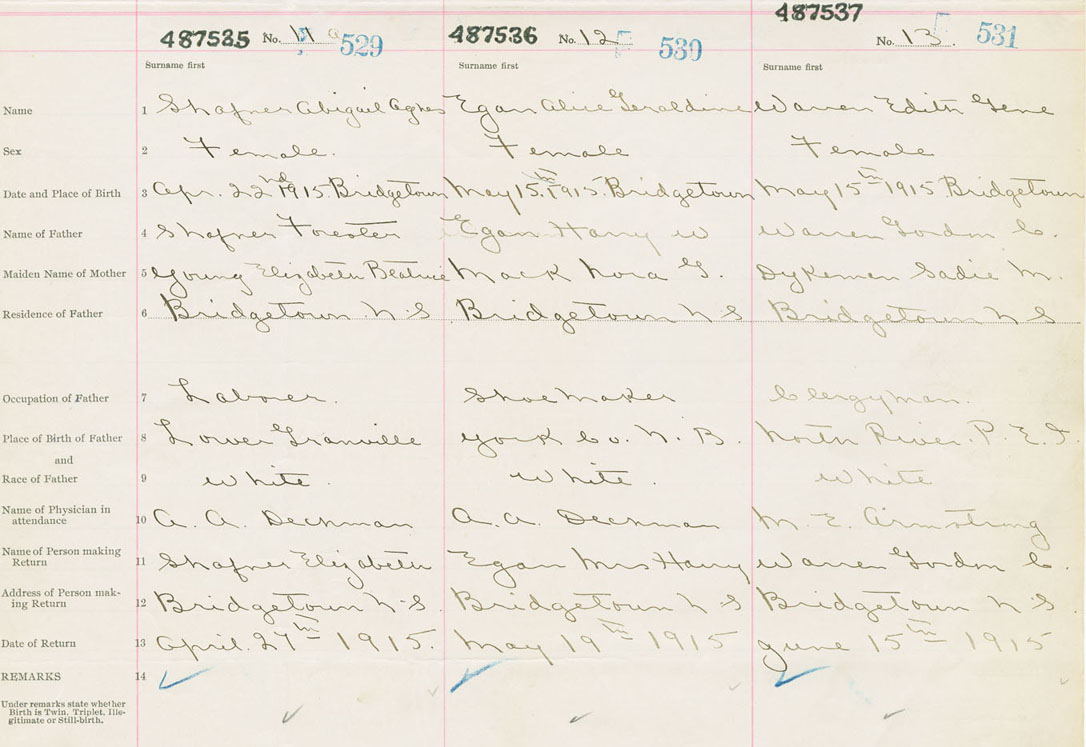 487535 No. 11 529 487536 No. 12 530 487537 No. 13. 531
Surname first Surname first Surname first
Name 1 Shafner Abigail Agnes Egan Alice Geraldine Warren Edith Gene
Sex 2 Female. Female Female
Date and Place of Birth 3 Apr. 22nd 1915. Bridgetown May 15.th 1915. Bridgetown May 15th 1915. Bridgetown
Name of Father 4 Shafner Forester Egan Harry W Warren Gordon C.
Maiden Name of Mother 5 Young Elizabeth Beatrice Mack Nora G. Dykeman Sadie M.
Residence of Father 6 Bridgetown N S Bridgetown N S Bridgetown N S
Occupation of Father 7 Laborer. Shoemaker Clergyman.
Place of Birth of Father 8 Lower Granville York Co. N. B. North River. P. E. I.
and
Race of Father 9 White. White. White
Name of Physician in
attendance 10 A. A. Dechman A. A. Dechman M. E. Armstrong
Name of Person making
Return 11 Shafner Elizabeth Egan Mrs Harry Warren Gordon C.
Address of Person mak-
ing Return 12 Bridgetown N.S. Bridgetown N S Bridgetown N S.
Date of Return 13 April. 27th 1915. May 19th 1915 June 15th 1915
REMARKS 14
Under remarks state whether
Birth is Twin, Triplet, Ille-
gitimate or Still-birth.